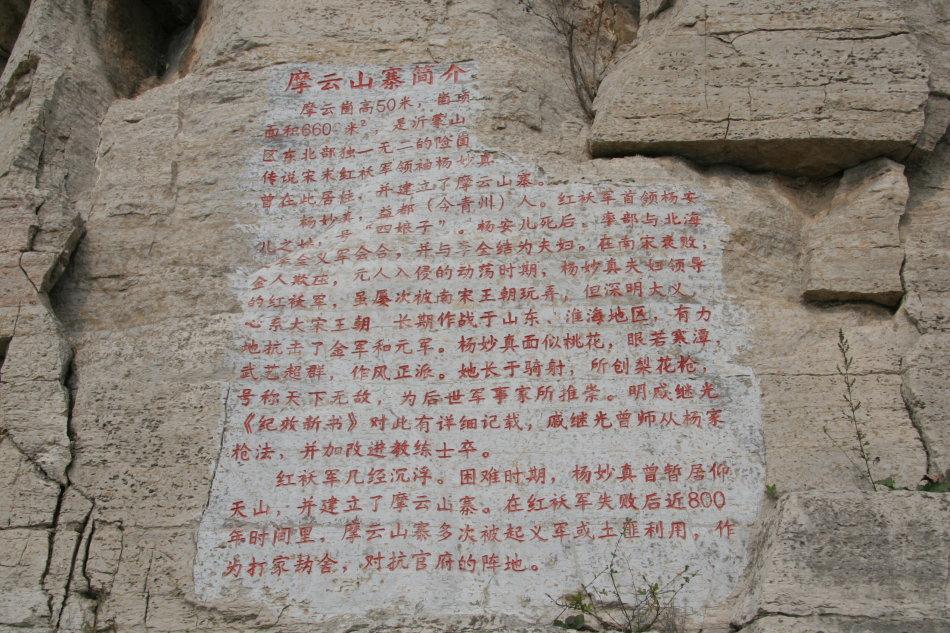 摩云山寨简介
摩云崮高50米，崮顶
面积660 米²，是沂蒙山
区东北部独一无二的险崮
传说宋末红袄军领袖杨妙真
曾在此居住，并建立了摩云山寨。
杨妙真，益都（今青州）人。红袄军首领杨安
儿之妹，号“四娘子”。杨安儿死后，率部与北海
李全义军会合，并与李全结为夫妇。在南宋衰败，
金人欺压，元人入侵的动荡时期，杨妙真夫妇领导
的红袄军，虽屡次被南宋王朝玩弄，但深明大义
心系大宋王朝 长期作战于山东、淮海地区，有力
地抗击了金军和元军。杨妙真面似桃花，眼若寒潭，
武艺超群，作风正派。她长于骑射，所创梨花枪，
号称天下无敌，为后世军事家所推崇。明戚继光
《纪效新书》对此有详细记载，戚继光曾师从杨家
枪法，并加改进教练士卒。
红袄军几经沉浮。困难时期，杨妙真曾暂居仰
天山，并建立了摩云山寨。在红袄军失败后近800
年时间里，摩云山寨多次被起义军或土匪利用，作
为打家劫舍，对抗官府的阵地。